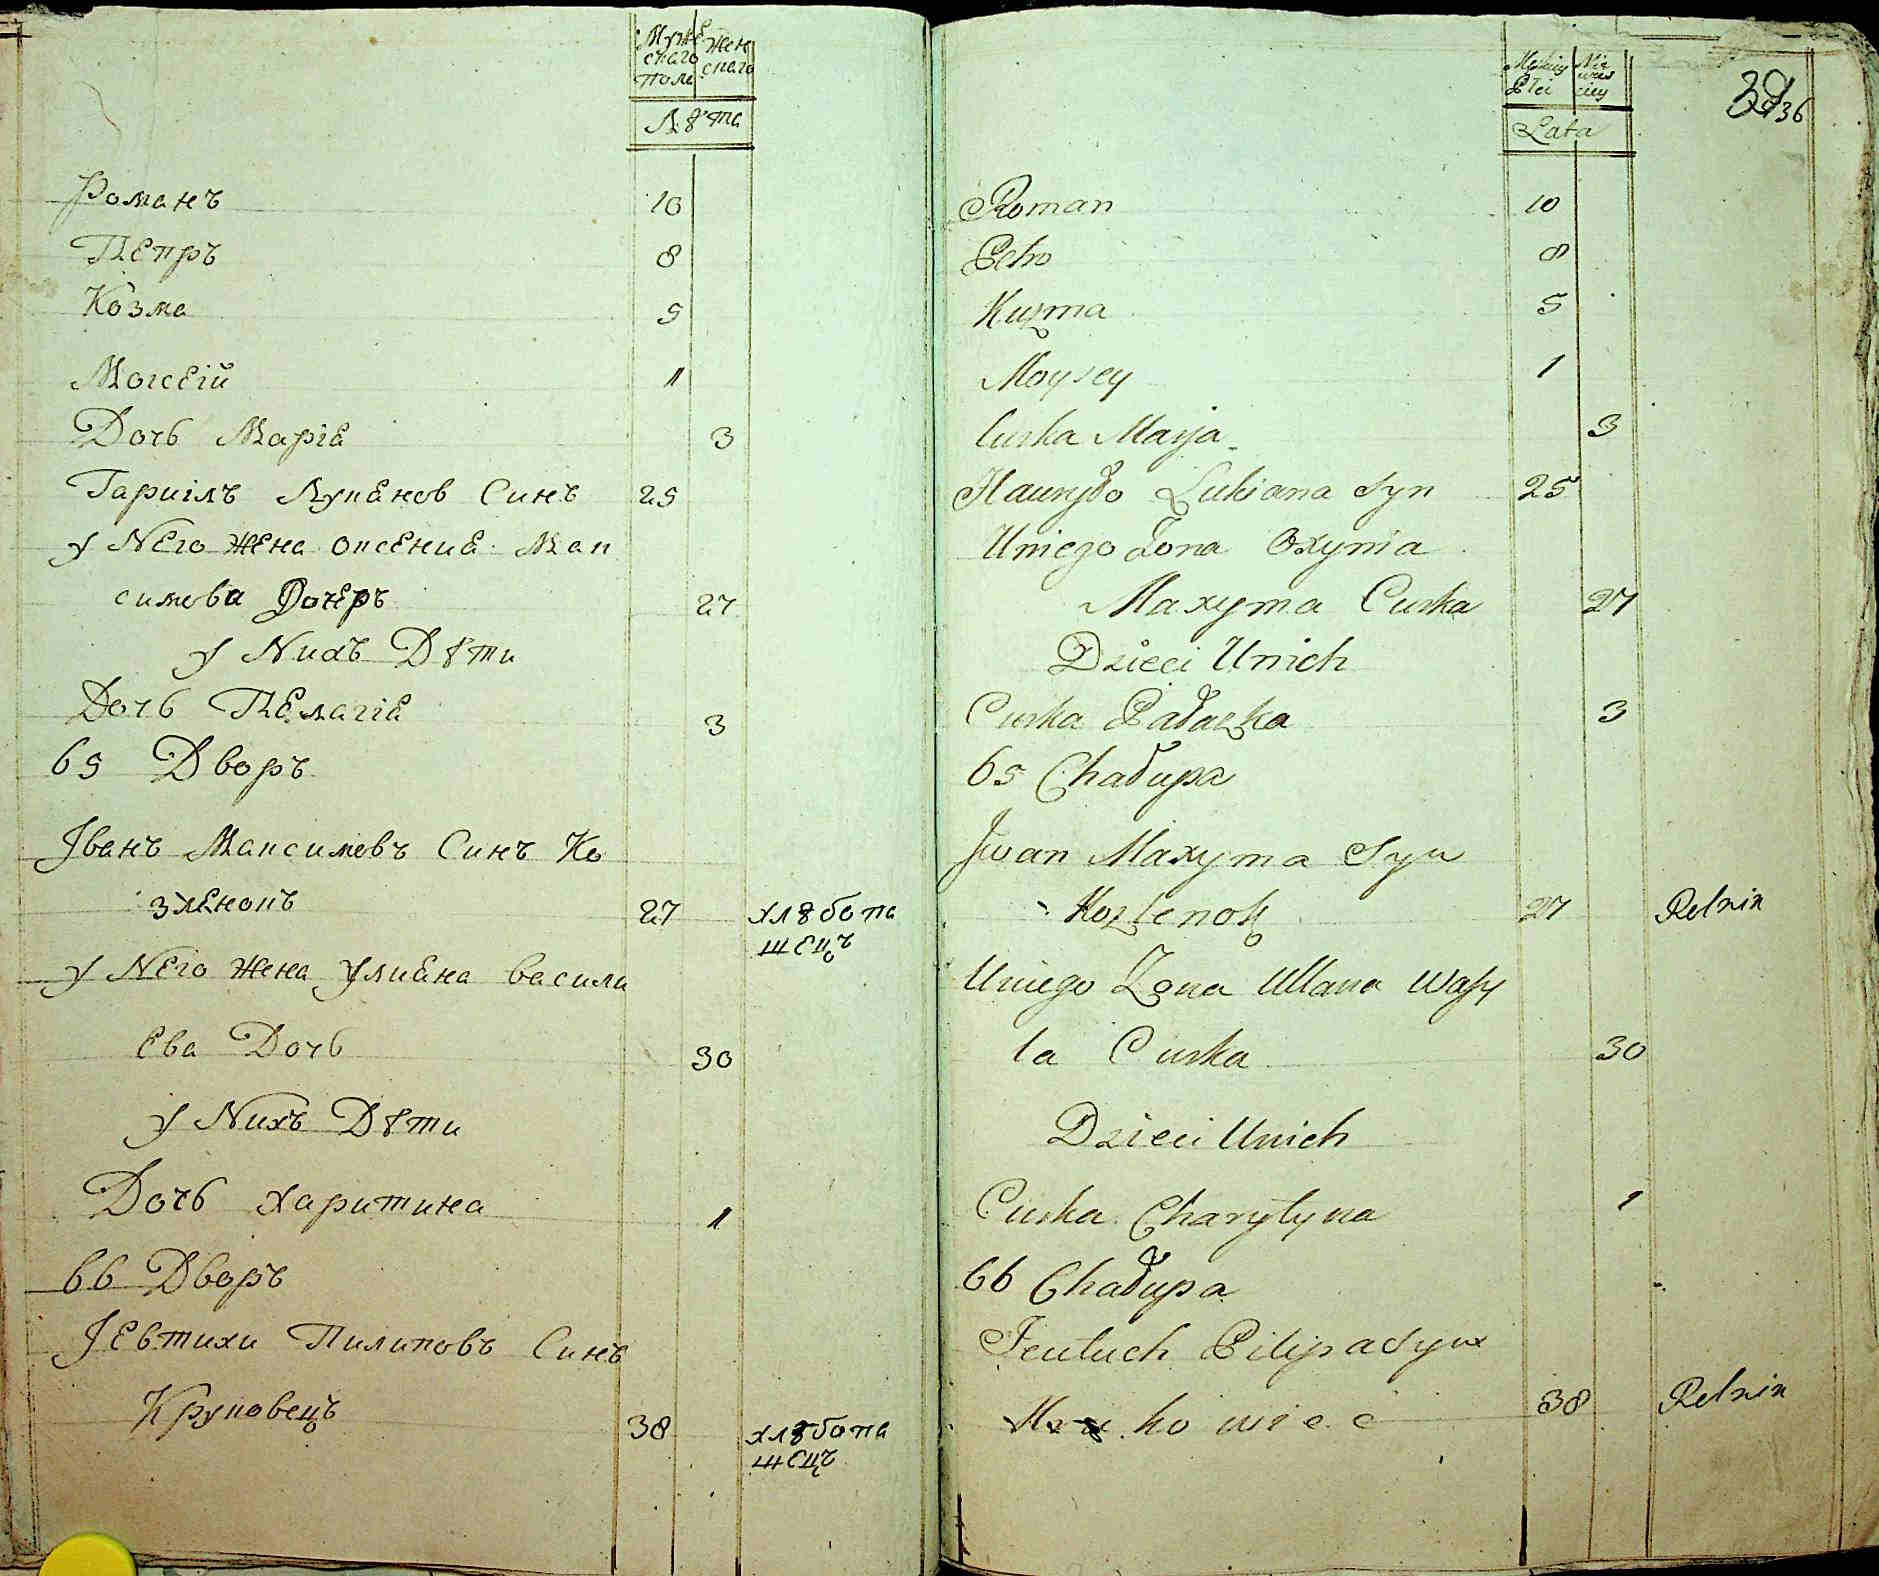 Мужескаго пола
Женскаго
Лѣта
Романъ 10
Петръ 8
Козма 5
Моисей 1
Дочь Маріа 3
Гариілъ Лукяновъ Синъ 25
у Него Жена Оксения Мак
симова Дочеръ 27
у Нихъ Дѣти
Дочь Пелагіе 3
65 Дворъ
Іванъ Максимовъ Синъ Ко
зленокъ 27 хлѣбопа
шецъ
у Него Жена Улияна Васили
ева Дочь 30
у Нихъ Дѣти
Дочь Харитина 1
66 Дворъ
Іевтихи Пилиповъ Синъ
Круковецъ 38 хлѣбопа
шецъ
36
Męskiey Płci
Niewieściey
Lata
Roman 10
Petro 8
Kuzma 5
Moysey 1
Curka Marja 3
Hawryło Lukiana Syn 25
Uniego Żona Oxynia
Maxyma Curka 27
Dzieci Unich
Curka Pałażka 3
65 Chałupa
Jwan Maxyma Syn
Kozlenok 27 Rolnik
Uniego Zona Ullana Wasy
la Curka 30
Dzieci Unich
Curka Charytyna 1
66 Chałupa
Jeutuch Pilipa Syn
Krukowiec 38 Rolnik